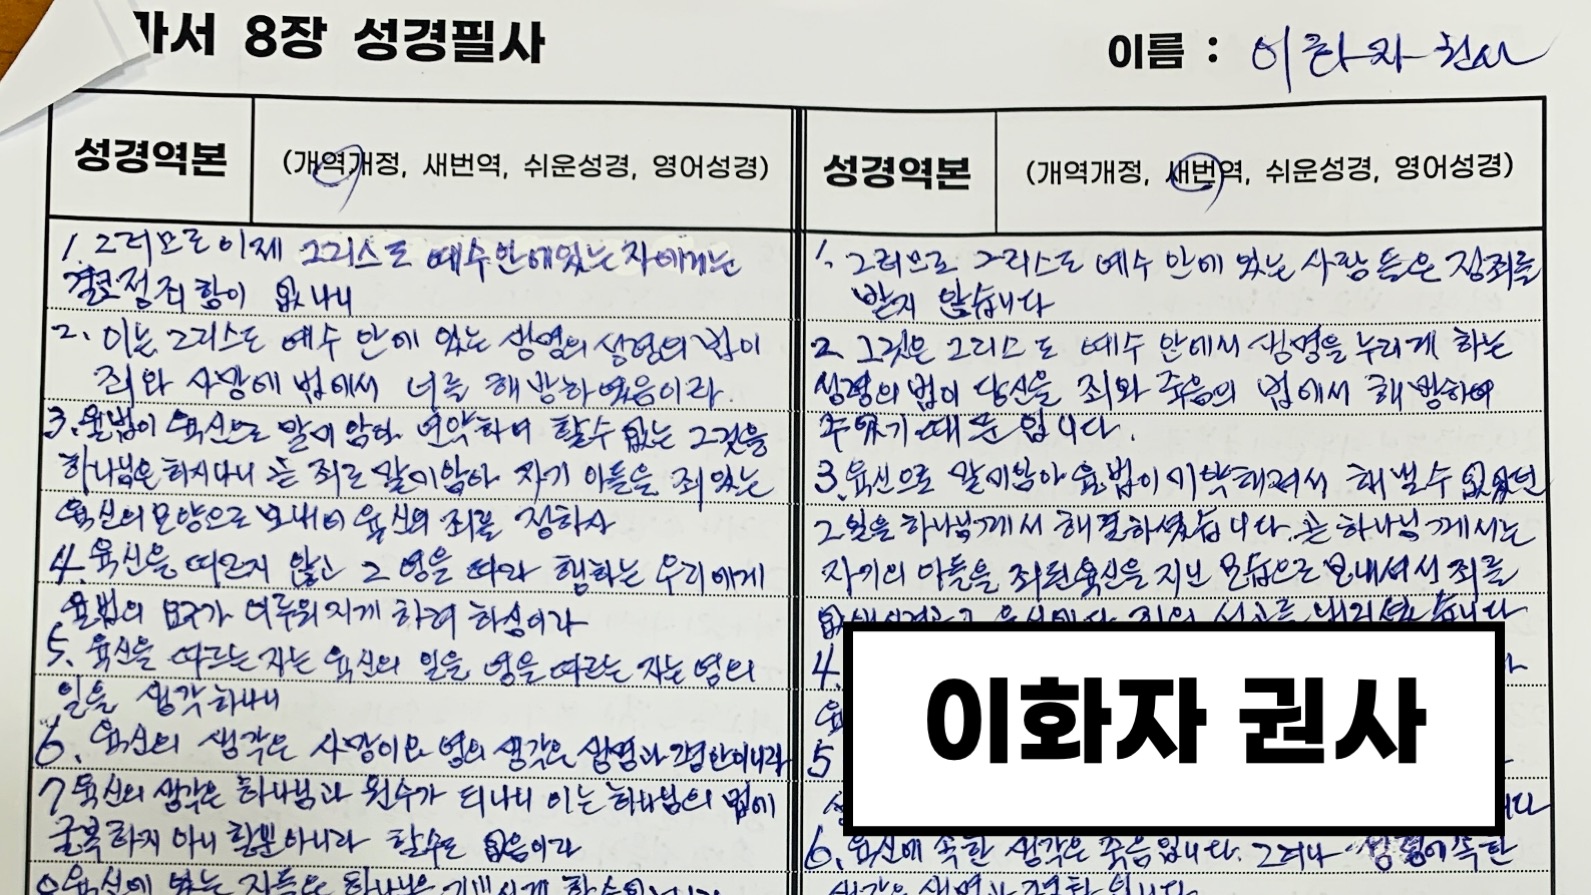 마서 8장 성경필사
이름 : 이화자 권사
성경역본 (개역개정, 새번역, 쉬운성경, 영어성경)
1. 그러므로 이제 그리스도 예수 안에 있는 자에게는
결코 정죄함이 없나니
2. 이는 그리스도 예수 안에 있는 생명의 성령의 법이
죄와 사망에 법에서 너를 해방하였음이라.
3. 율법이 육신으로 말미암아 연약하여 할수 없는 그것을
하나님은 하시나니 곧 죄로 말미암아 자기 아들을 죄 있는
육신의 모양으로 보내어 육신의 죄를 정하사
4. 육신을 따르지 않고 그 영을 따라 행하는 우리에게
율법의 요구가 이루어지게 하려 하심이라
5. 육신을 따르는 자는 육신의 일을 영을 따르는 자는 영의
일을 생각하나니
6. 육신의 생각은 사망이요 영의 생각은 생명과 평안이니라
7 육신의 생각은 하나님과 원수가 되나니 이는 하나님의 법에
굴복하지 아니할뿐아니라 할수도 없음이라
8 육신에 있는 자들은 하나님을 기쁘시게 할수없느니라
성경역본 (개역개정, 새번역, 쉬운성경, 영어성경)
1. 그러므로 그리스도 예수 안에 있는 사람들은 정죄를
받지 않습니다
2. 그것은 그리스도 예수 안에서 생명을 누리게 하는
성령의 법이 당신을 죄와 죽음의 법에서 해방하여
주었기 때문입니다.
3. 육신으로 말미암아 율법이 미약해져서 해낼수 없었던
그 일을 하나님께서 해결하셨습니다. 곧 하나님께서는
자기의 아들을 죄된 육신을 지닌 모습으로 보내셔서 죄를
없애시려고 육신에다 죄의 선고를 내리셨습니다
4.
육
5
이화자 권사
6. 육신에 속한 생각은 죽음입니다. 그러나 성령에 속한
생각은 생명과 평화입니다.